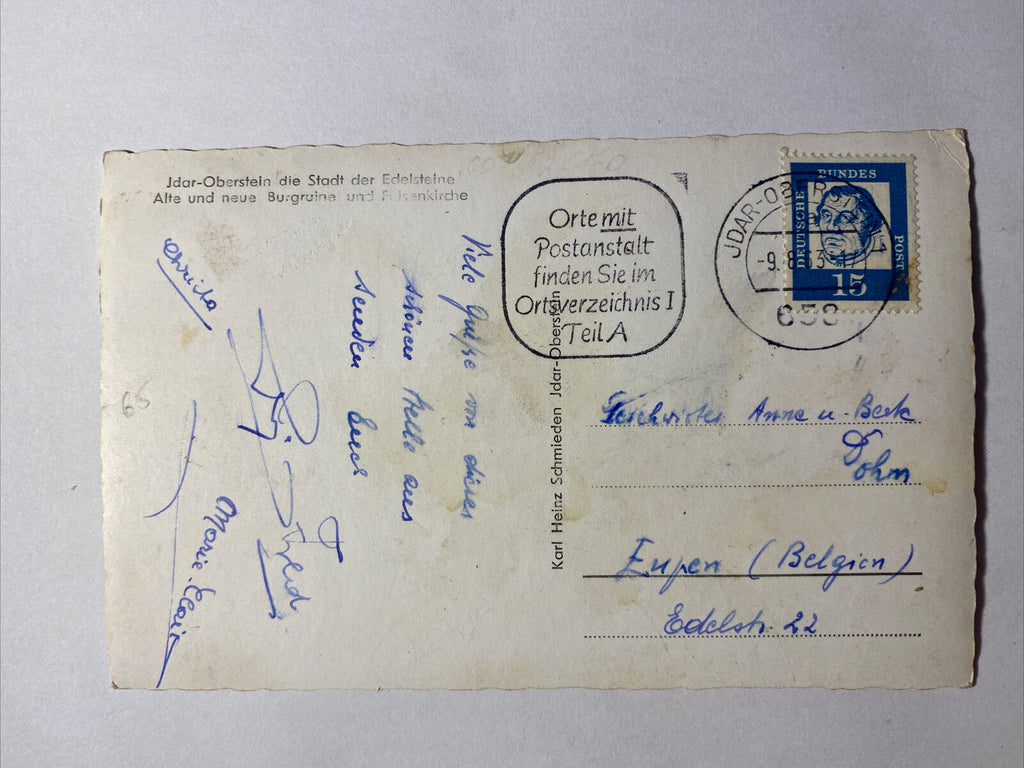 Jdar-Oberstein die Stadt der Edelsteine
Alte und neue Burgruine und Felsenkirche
Orte mit
Postanstalt
finden Sie im
Ortsverzeichnis I
Teil A
JDAR-OBERSTEIN
-9.8.63-17
658
DEUTSCHE BUNDES POST
15
Viele Grüße von dieser
schönen Stelle aus
senden Euch
Christa
Marie-Claire
Karl Heinz Schmieden Jdar-Oberstein
Geschwister Anne u. Beate
Dohm
Eupen (Belgien)
Edelstr. 22
65